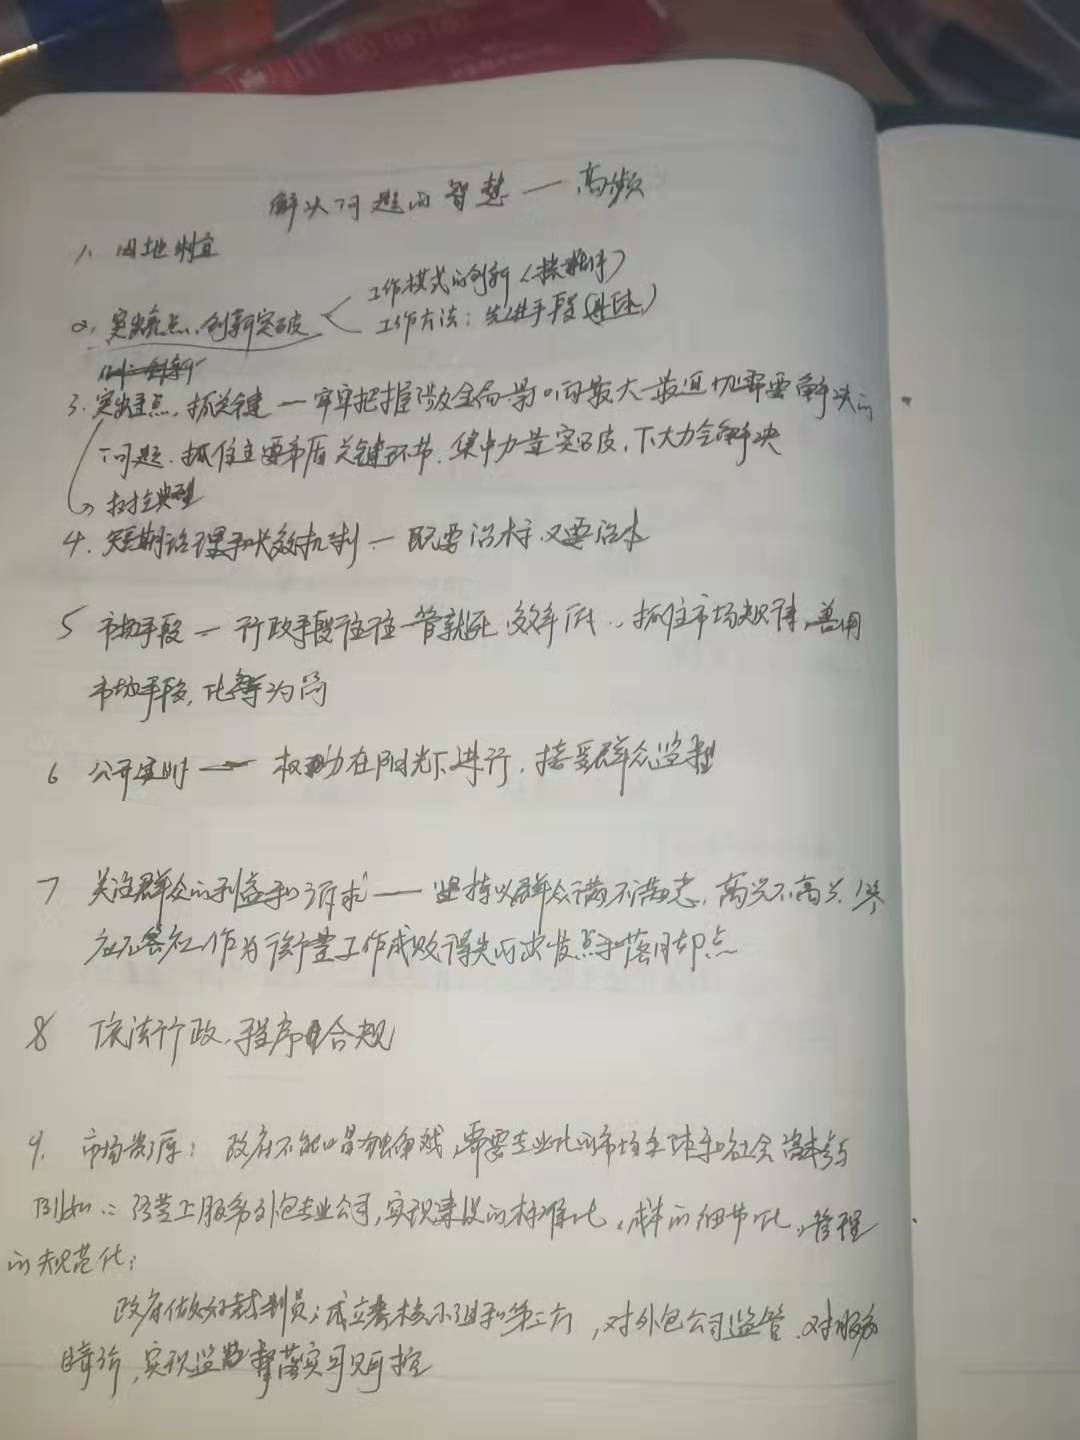 解决问题的智慧 — 高频
1. 因地制宜
工作模式的创新
2. 突出亮点、创新突破
工作方法：先进手段
3. 突出重点，抓关键 — 牢牢把握涉及全局 最大 最迫切需要解决的
问题、抓住主要矛盾关键环节、集中力量突破，下大力气解决
树立典型
4. 短期治理和长效机制 — 既要治标、又要治本
5 市场手段 — 行政手段往往一管就死、效率低、抓住市场规律，善用
市场手段，化繁为简
6 公开 — 权力在阳光下进行，接受群众监督
7 关注群众的利益和诉求 — 坚持以群众满不满意，高兴不高兴
作为衡量工作成败得失的出发点和落脚点
8 依法行政，程序合规
9. 市场资源：政府不能唱独角戏，需要专业化的市场主体和社会资本参与
例如：运营上服务外包专业公司，实现建设的标准化、成本的细节化、管理
的规范化；
政府做好裁判员；成立考核小组和第三方，对外包公司监管、对服务
，实现监督落实可见可控